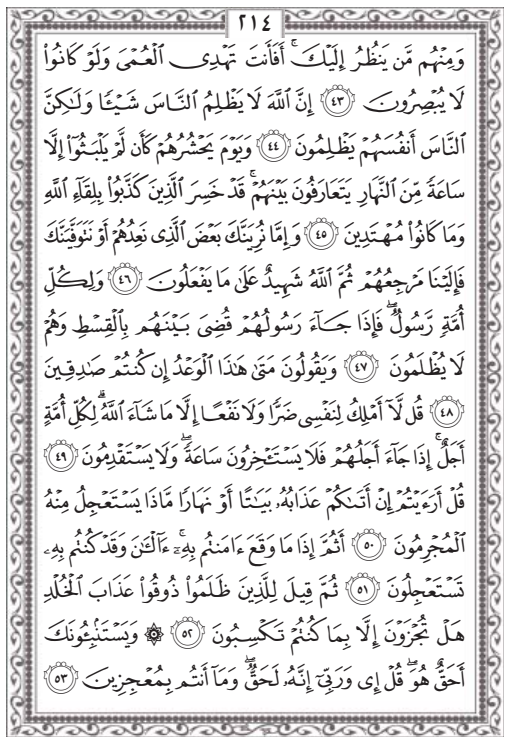 ٢١٤
وَمِنْهُم مَّن يَنظُرُ إِلَيْكَ ۚ أَفَأَنتَ تَهْدِى ٱلْعُمْىَ وَلَوْ كَانُوا۟
لَا يُبْصِرُونَ ﴿٤٣﴾ إِنَّ ٱللَّهَ لَا يَظْلِمُ ٱلنَّاسَ شَيْـًٔا وَلَـٰكِنَّ
ٱلنَّاسَ أَنفُسَهُمْ يَظْلِمُونَ ﴿٤٤﴾ وَيَوْمَ يَحْشُرُهُمْ كَأَن لَّمْ يَلْبَثُوٓا۟ إِلَّا
سَاعَةً مِّنَ ٱلنَّهَارِ يَتَعَارَفُونَ بَيْنَهُمْ ۚ قَدْ خَسِرَ ٱلَّذِينَ كَذَّبُوا۟ بِلِقَآءِ ٱللَّهِ
وَمَا كَانُوا۟ مُهْتَدِينَ ﴿٤٥﴾ وَإِمَّا نُرِيَنَّكَ بَعْضَ ٱلَّذِى نَعِدُهُمْ أَوْ نَتَوَفَّيَنَّكَ
فَإِلَيْنَا مَرْجِعُهُمْ ثُمَّ ٱللَّهُ شَهِيدٌ عَلَىٰ مَا يَفْعَلُونَ ﴿٤٦﴾ وَلِكُلِّ
أُمَّةٍ رَّسُولٌ ۖ فَإِذَا جَآءَ رَسُولُهُمْ قُضِىَ بَيْنَهُم بِٱلْقِسْطِ وَهُمْ
لَا يُظْلَمُونَ ﴿٤٧﴾ وَيَقُولُونَ مَتَىٰ هَـٰذَا ٱلْوَعْدُ إِن كُنتُمْ صَـٰدِقِينَ
﴿٤٨﴾ قُل لَّآ أَمْلِكُ لِنَفْسِى ضَرًّا وَلَا نَفْعًا إِلَّا مَا شَآءَ ٱللَّهُ ۗ لِكُلِّ أُمَّةٍ
أَجَلٌ ۚ إِذَا جَآءَ أَجَلُهُمْ فَلَا يَسْتَـْٔخِرُونَ سَاعَةً ۖ وَلَا يَسْتَقْدِمُونَ ﴿٤٩﴾
قُلْ أَرَءَيْتُمْ إِنْ أَتَىٰكُمْ عَذَابُهُۥ بَيَـٰتًا أَوْ نَهَارًا مَّاذَا يَسْتَعْجِلُ مِنْهُ
ٱلْمُجْرِمُونَ ﴿٥٠﴾ أَثُمَّ إِذَا مَا وَقَعَ ءَامَنتُم بِهِۦٓ ۚ ءَآلْـَٔـٰنَ وَقَدْ كُنتُم بِهِۦ
تَسْتَعْجِلُونَ ﴿٥١﴾ ثُمَّ قِيلَ لِلَّذِينَ ظَلَمُوا۟ ذُوقُوا۟ عَذَابَ ٱلْخُلْدِ
هَلْ تُجْزَوْنَ إِلَّا بِمَا كُنتُمْ تَكْسِبُونَ ﴿٥٢﴾ ۞ وَيَسْتَنۢبِـُٔونَكَ
أَحَقٌّ هُوَ ۖ قُلْ إِى وَرَبِّىٓ إِنَّهُۥ لَحَقٌّ ۖ وَمَآ أَنتُم بِمُعْجِزِينَ ﴿٥٣﴾